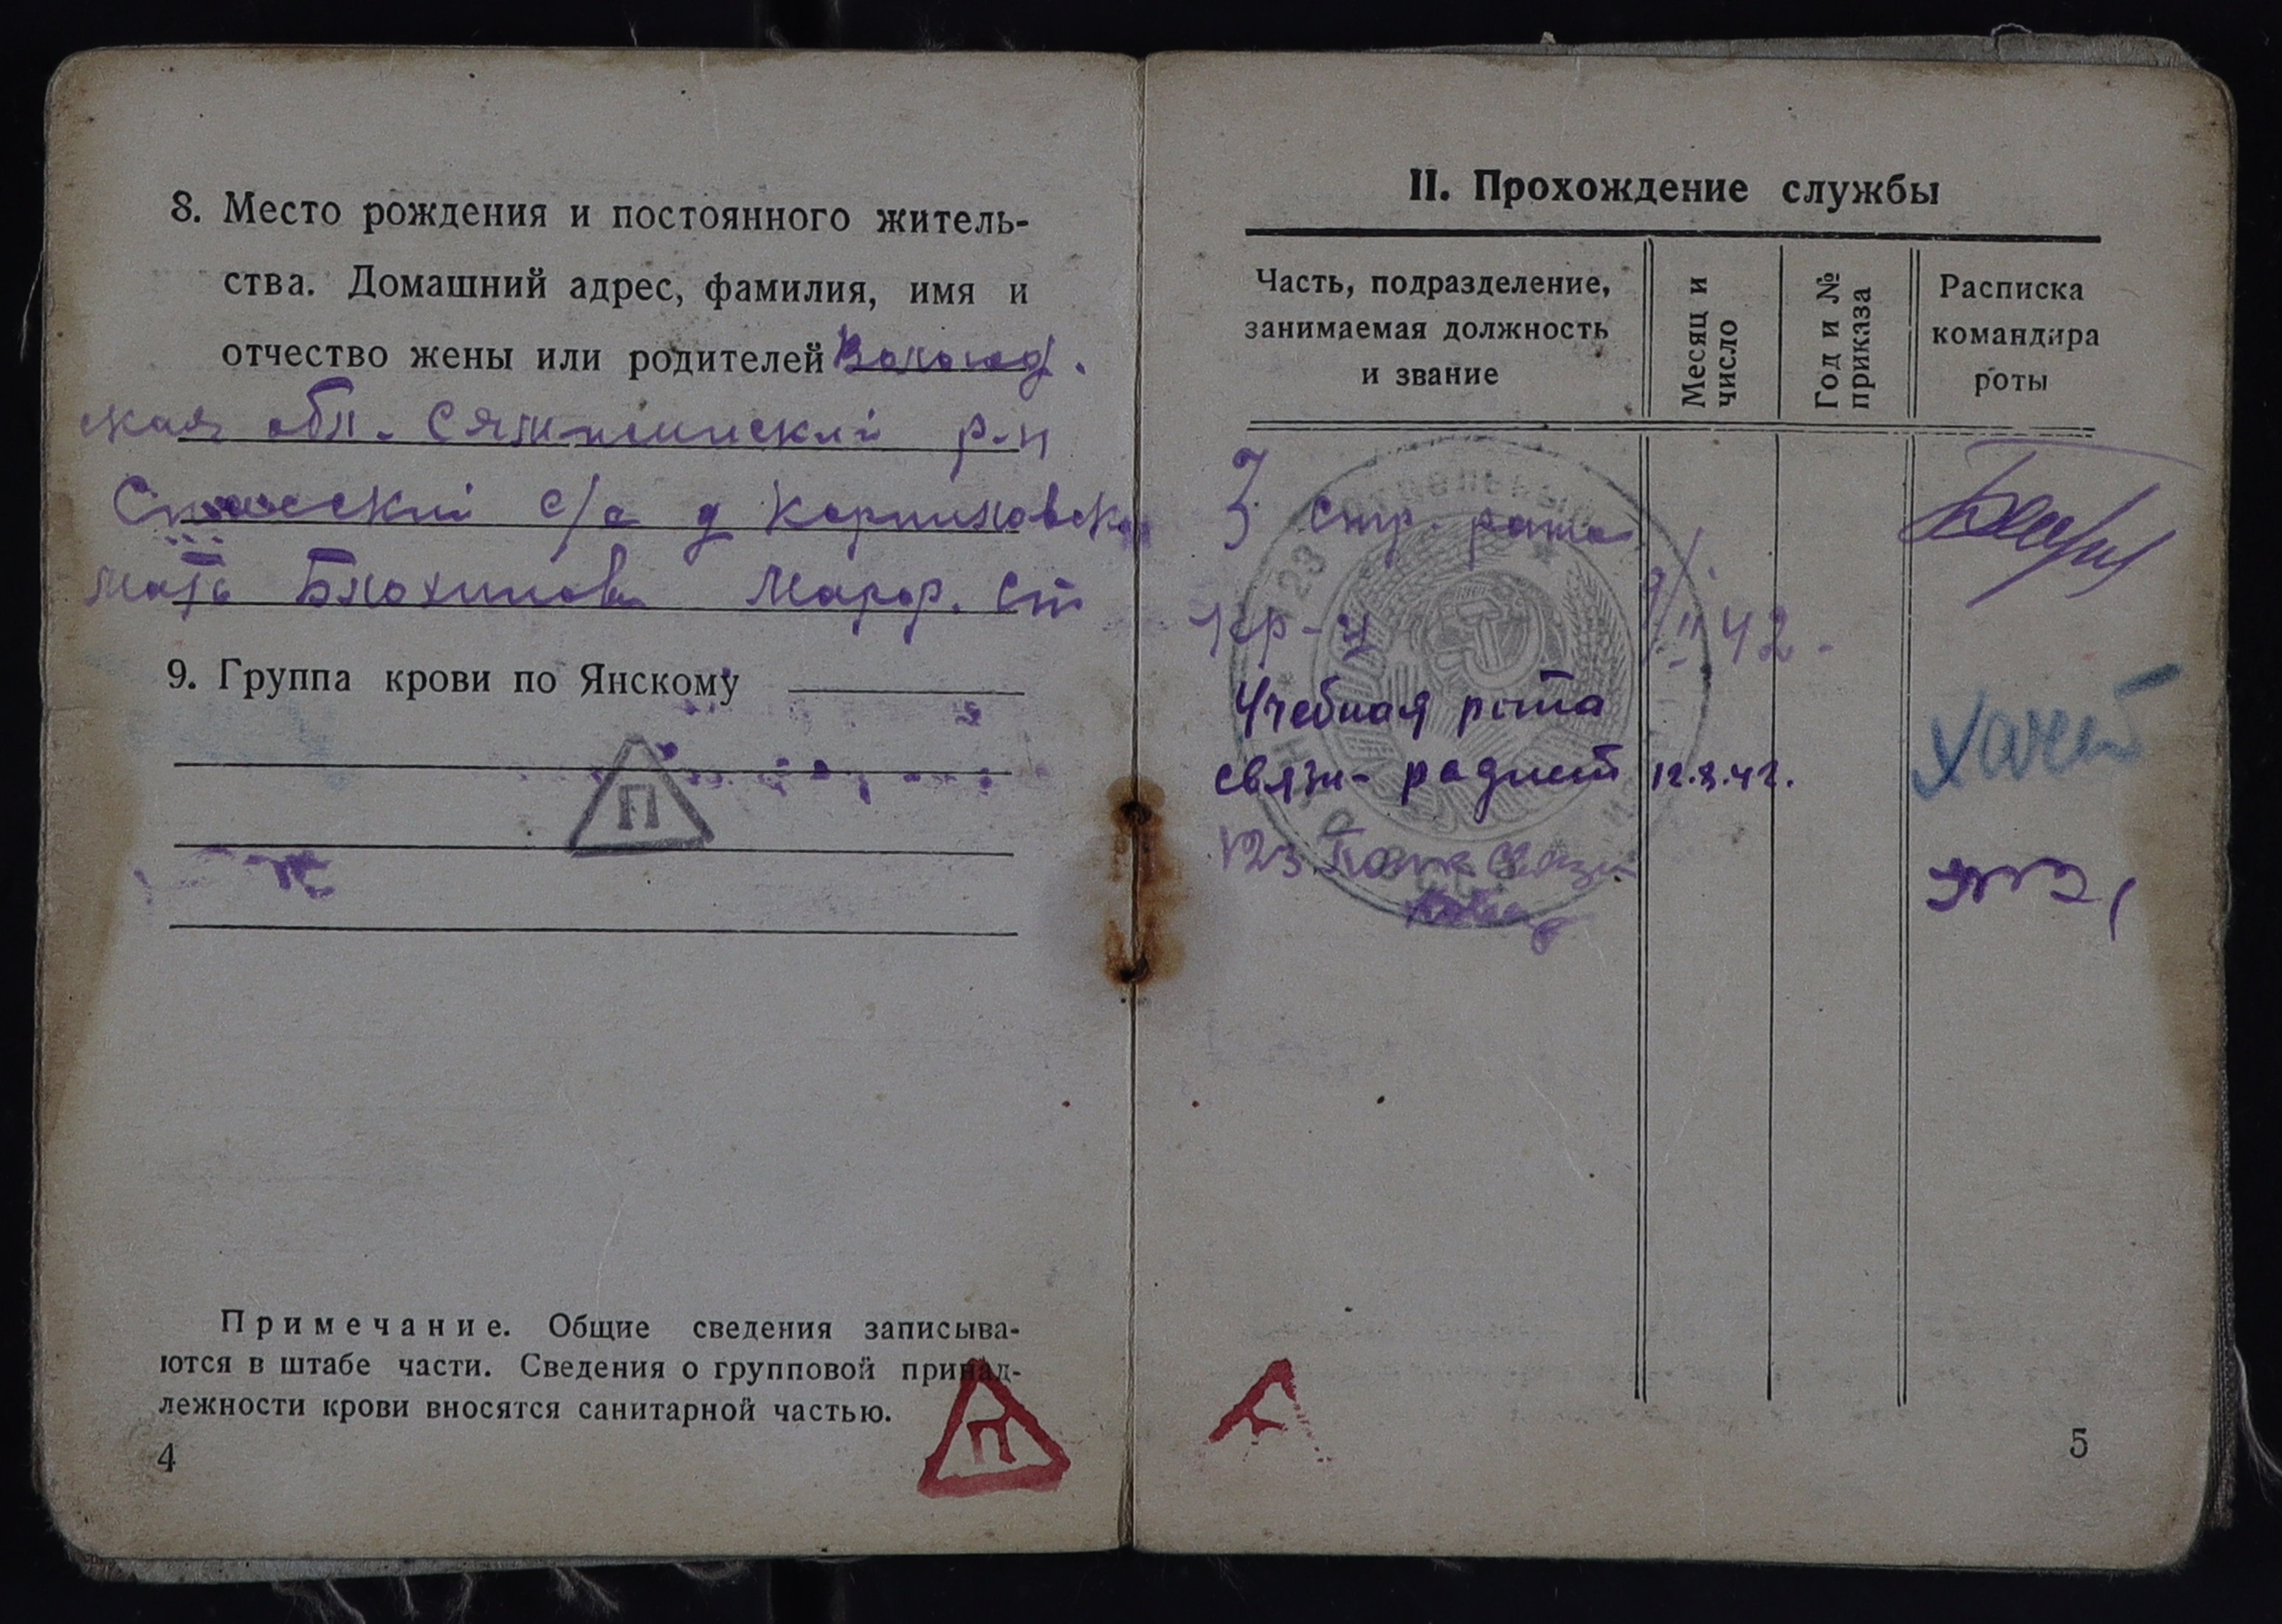 8. Место рождения и постоянного житель-
ства. Домашний адрес, фамилия, имя и
отчество жены или родителей Вологод.
ская обл. Сямженский р-н
с/с д
мать Блохинова Марф. Ст
9. Группа крови по Янскому
П
Примечание. Общие сведения записыва-
ются в штабе части. Сведения о групповой принад-
лежности крови вносятся санитарной частью.
П
4
II. Прохождение службы
Часть, подразделение,
занимаемая должность
и звание
Месяц и
число
Год и №
приказа
Расписка
командира
роты
3 стр. рота
кр-ц 9/II 42-
Учебная рота
связи- радист 12.3.42.
123 Полк связи
123 ОТДЕЛЬНЫЙ
5